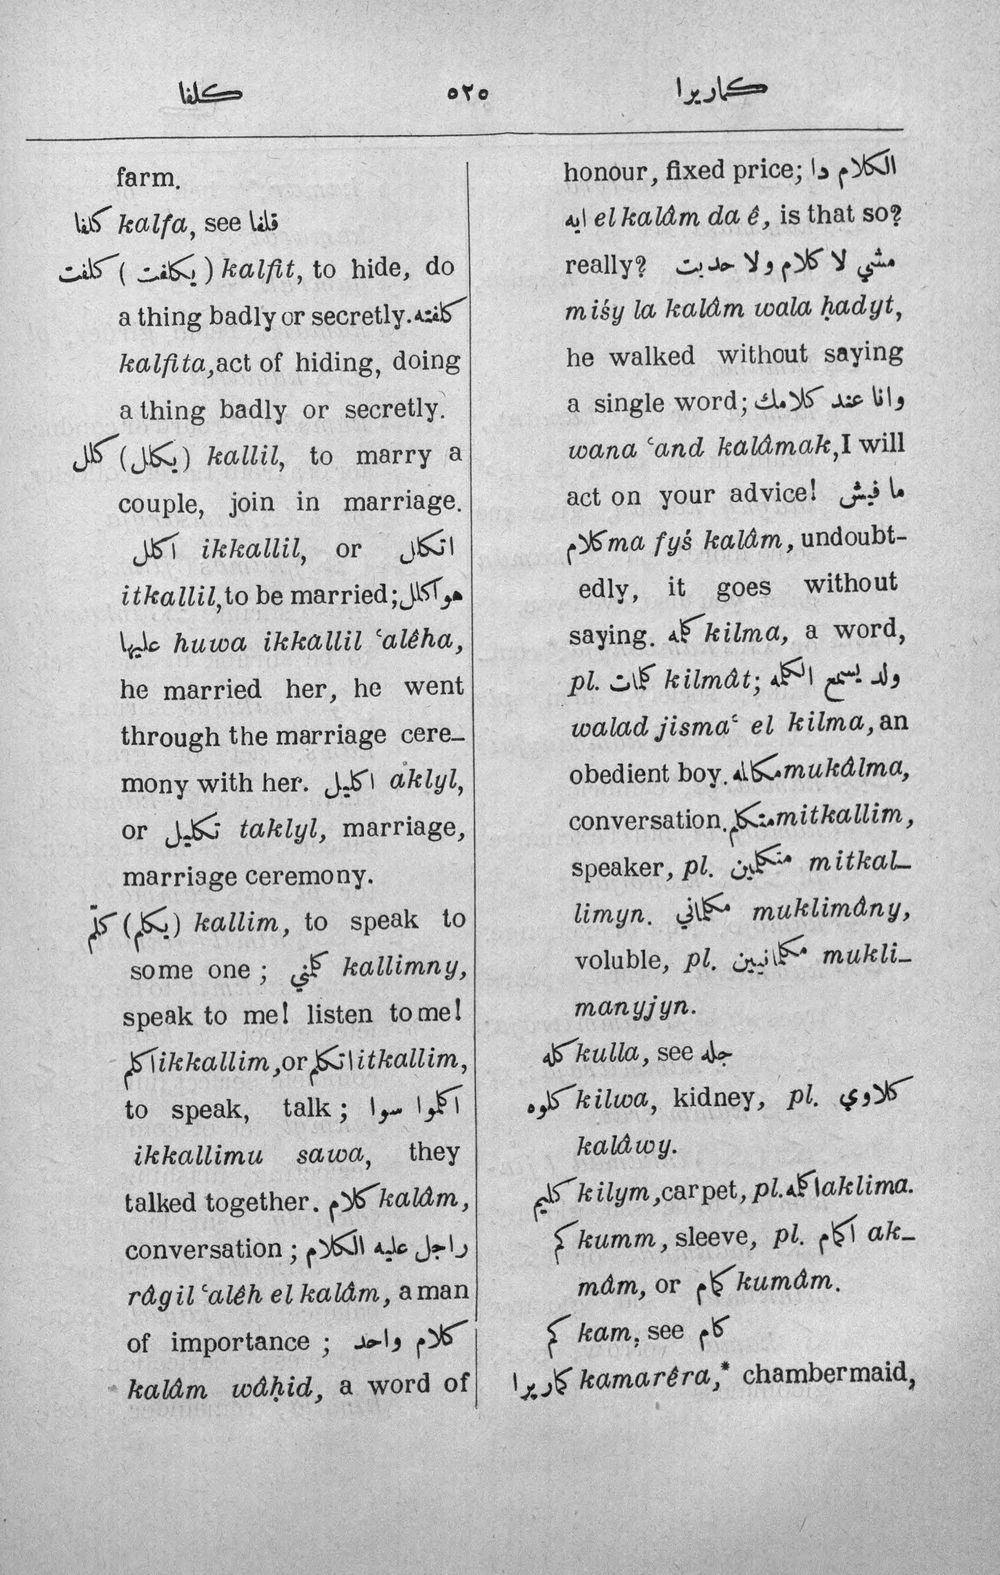 كلفا ٥٢٥ كماريرا
farm.
كلفا kalfa, see قلفا
كلفت (يكلفت) kalfit, to hide, do
a thing badly or secretly. كلفته
kalfita, act of hiding, doing
a thing badly or secretly.
كلل (يكلل) kallil, to marry a
couple, join in marriage.
اكلل ikkallil, or اتكلل
itkallil, to be married; هو اكلل
عليها huwa ikkallil ʿalêha,
he married her, he went
through the marriage cere-
mony with her. اكليل aklyl,
or تكليل taklyl, marriage,
marriage ceremony.
كلّم (يكلم) kallim, to speak to
some one; كلمني kallimny,
speak to me! listen to me!
اكلم ikkallim, or اتكلم itkallim,
to speak, talk; اكلموا سوا
ikkallimu sawa, they
talked together. كلام kalâm,
conversation; راجل عليه الكلام
râgil ʿalêh el kalâm, a man
of importance; كلام واحد
kalâm wâḥid, a word of
honour, fixed price; الكلام دا
ايه el kalâm da ê, is that so?
really? مشي لا كلام ولا حديت
miśy la kalâm wala ḥadyt,
he walked without saying
a single word; وانا عند كلامك
wana ʿand kalâmak, I will
act on your advice! ما فيش
كلام ma fyś kalâm, undoubt-
edly, it goes without
saying. كلمه kilma, a word,
pl. كلمات kilmât; ولد يسمع الكلمه
walad jismaʿ el kilma, an
obedient boy. مكالمه mukâlma,
conversation. متكلم mitkallim,
speaker, pl. متكلمين mitkal-
limyn. مكلماني muklimâny,
voluble, pl. مكلمانيين mukli-
manyjyn.
كله kulla, see جله
كلوه kilwa, kidney, pl. كلاوي
kalâwy.
كليم kilym, carpet, pl. اكلمه aklima.
كم kumm, sleeve, pl. اكمام ak-
mâm, or كمام kumâm.
كم kam, see كام
كماريرا kamarêra,* chambermaid,